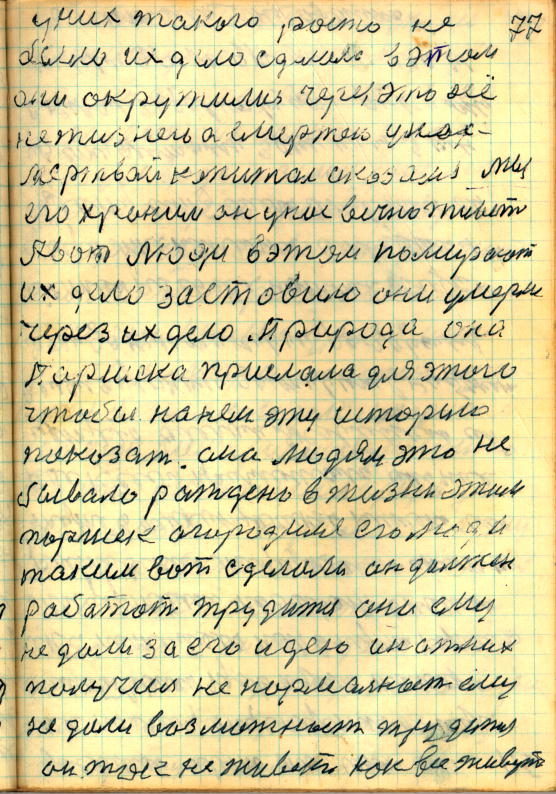 77
у них такого росто не
было их дело сделоло в этом
они окружилис через это всё
не жизнею а смертею у нас
мертвой копитал оказался мы
его храним он у нас вечно живет
Явот люди в этом помирают
их дело застовило они умерли
через их дело. Природа она
Паршека прислала для этого
чтобы на нем эту историю
показат. она людям это не
бывало ражден в жизни этим
поршек огородил его люди
таким вот сделали он должен
работат трудитя они ему
не дали за его идею он от них
получил не нормалност ему
не дали возможност трудится
он же не живет как все живут